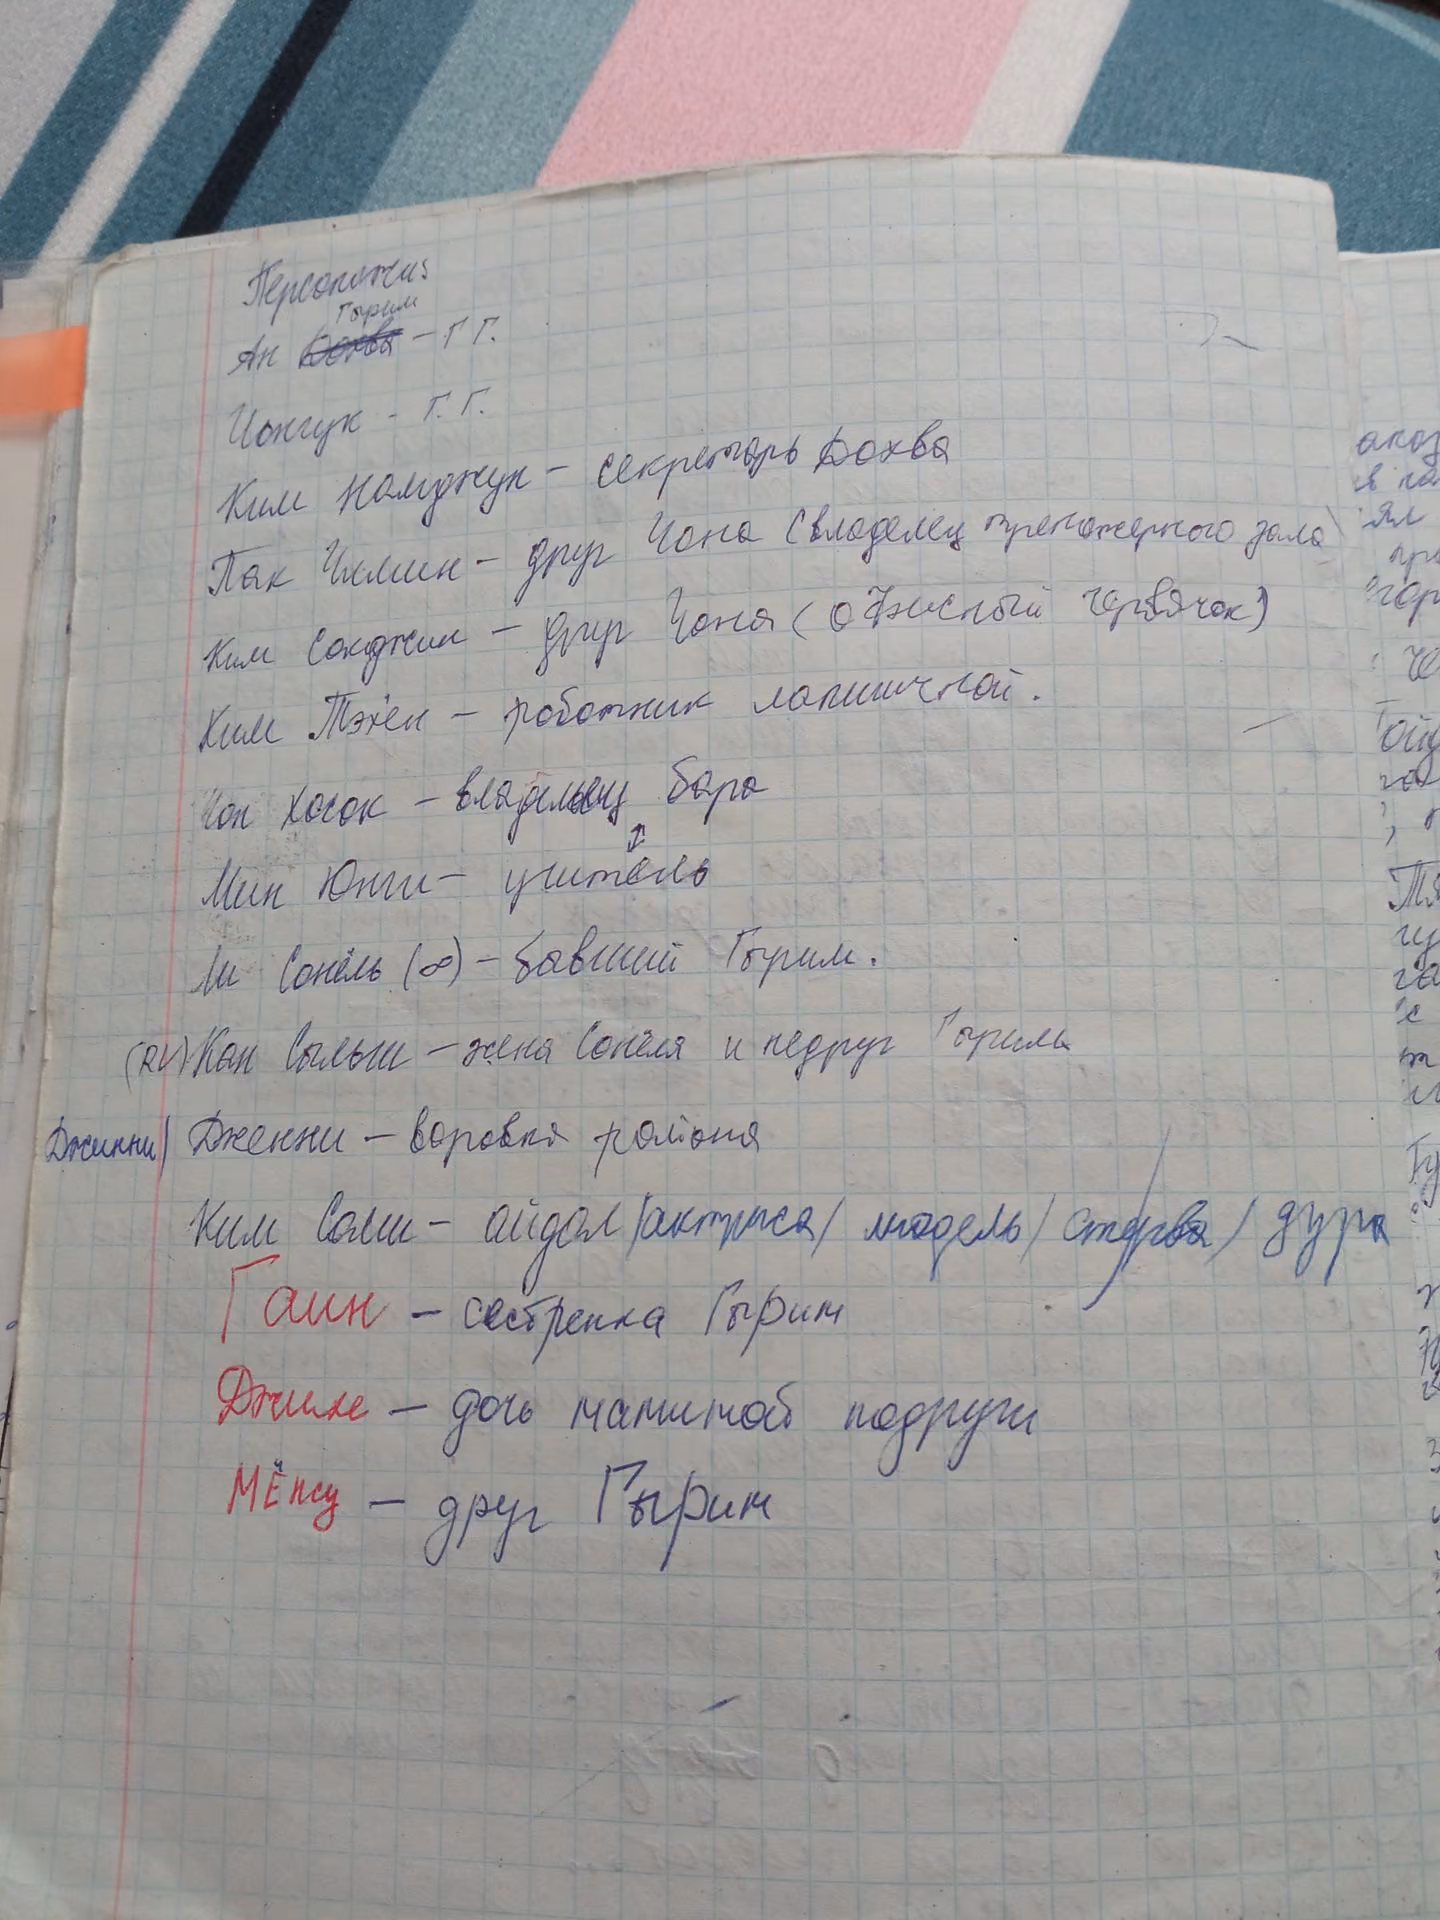 Персонажи:
Гырим
Ан Дохва – Г Г.
Чонгук – Г. Г.
Ким Намджун – секретарь Дохва
Пак Чимин – друг Чона (владелец тренажерного зала)
Ким Сокджин – друг Чона (офисный червячок)
Ким Тэхен – работник лапшичной.
Чон Хосок – владелец бара
Мин Юнги – учитель
Ли Сонёль (∞) – бывший Гырим.
(RV) Кан Сыльги – жена Сонёля и недруг Гырим
Джинни/ Дженни – воровка района
Ким Соми – айдол/актриса/ модель/ стерва/ дура
Гаин – сестренка Гырим
Джихе – дочь маминой подруги
Мёнсу – друг Гырим